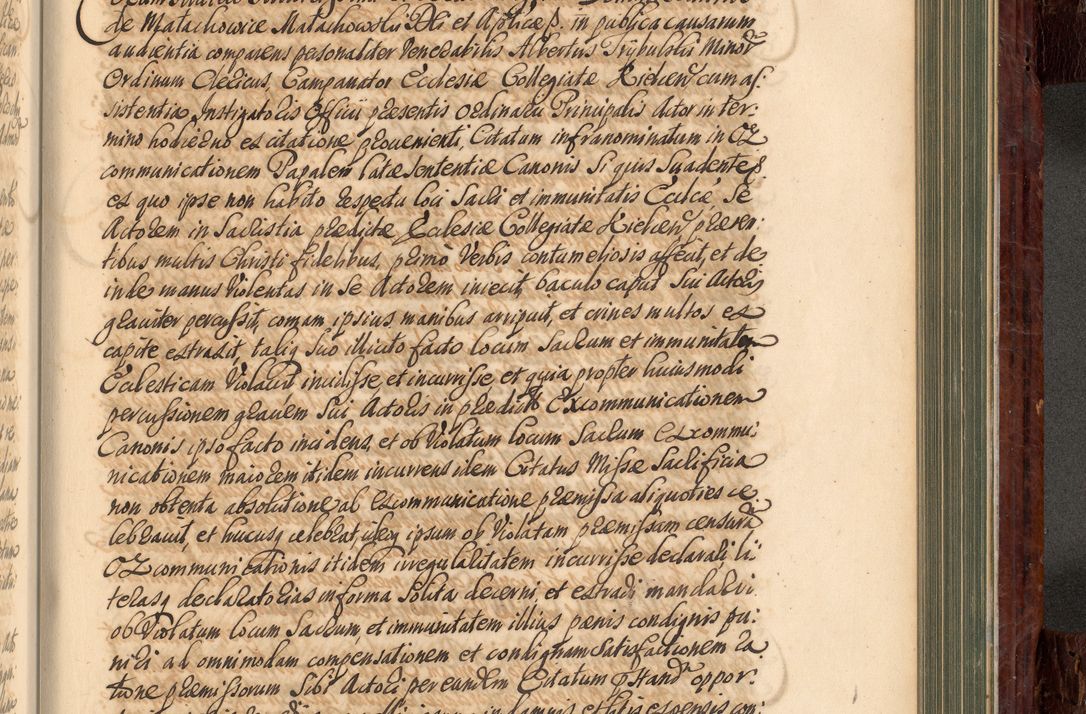 de Małachowice Małachowski Dei et Aplicæ S. in publica causarum
audientia comparens personaliter Venerabilis Albertus Trybulski Minorũ
Ordinum Clericus, Campanator Ecclesiæ Collegiatæ Kielceñ cum as:
sistentia Instigatoris Officii præsentis Ordinarii Principalis Actor in ter:
mino hodierno ex citatione provenienti, Citatum infranominatum in ex
communicationem Papalem latæ sententiæ Canonis Si quis Suadente &
ex quo ipse non habito respectu loci Sacri et immunitatis Ecclĩcæ Se
Actorem in Sacristia prædictæ Ecclesiæ Collegiatæ Kielceñ præsen:
tibus multis Christi fidelibus, primò Verbis contumeliosis affecit, et de
inde manus Violentas in Se Actorem iniecit, baculo caput Sui Actoris
graviter percussit, comam ipsius manibus arripuit, et crines multos ex
capite extraxit, taliq Suo illicito facto locum Sacrum et immunitatem
Ecclesticam Violavit incidisse, et incurrisse et quia propter huiusmodi
percussionem gravem Sui Actoris in prædict Excommunicationem
Canonis ipso facto incidens, et ob Violatum locum Sacrum excommu:
nicationem maiorem itidem incurrens idem Citatus Missæ Sacrificia
non obtenta absolutione ab excommunicatione præmissa aliquoties ce
lebravit, et hucusq celebrat, ideoq ipsum ob Violatam præmissam censurã
excommunicationis itidem irregularitatem incurrisse declarari, li:
terasq declaratorias in forma Solita decerni, et extradi mandari
ob Violatum locum Sacrum, et immunitatem illius pænis condignis pu:
niri ad omnimodam compensationem et condignam Satisfactionem ra
tione præmissorum Sibi Actori per eundem Citatum pstandã oppor: